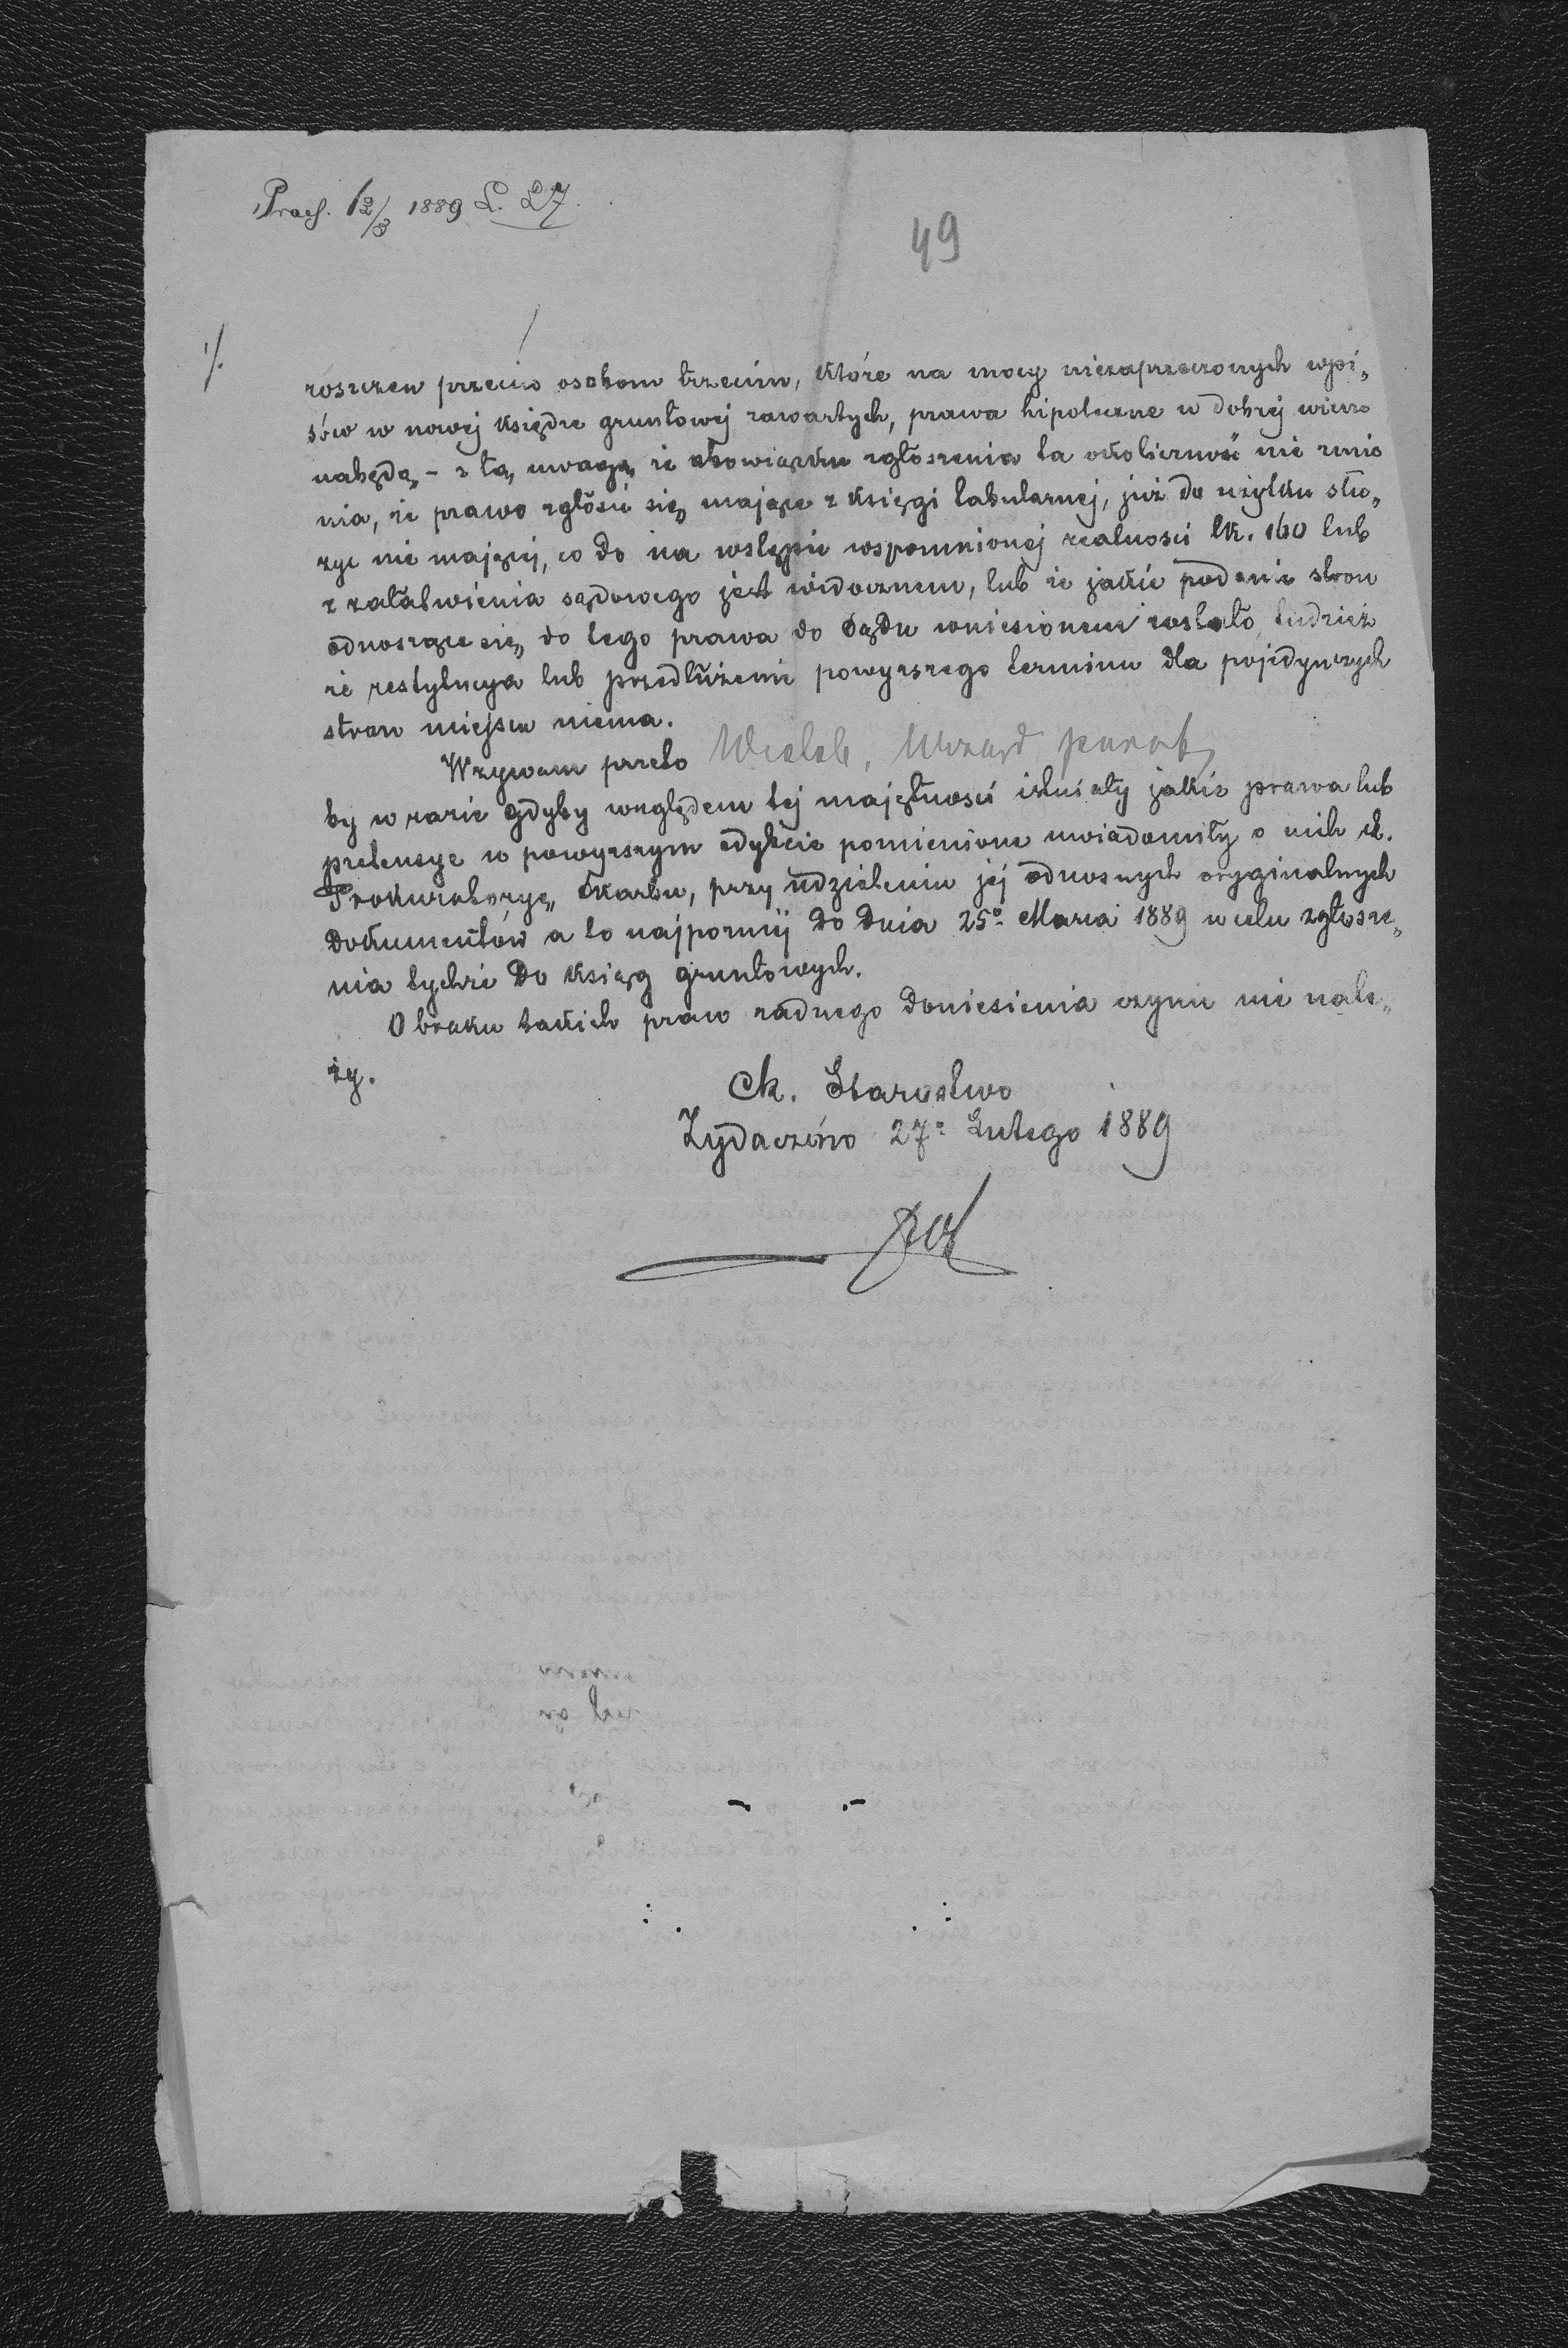 Praes. 12/3 1889 L. 27.
49
%
roszczen przeciw osobom trzecim, które na mocy niezaprzeczonych wpi„
sów w nowej księdze gruntowej zawartych, prawa hipoteczne w dobrej wierze
nabędą, – z tą uwagą, że obowiązku zgłoszenia ta okoliczność nie zmie
nia, że prawo zgłosić się mające z księgi tabularnej, już do użytku słu„
żyć nie mającej, co do na wstępie wspomnionej realności lk. 160 lub
z załatwienia sądowego jest widocznem, lub że jakie podanie stron
odnoszące się do tego prawa do Sądu wniesionem zostało, tudzież
że restytucya lub przedłużenie powyższego terminu dla pojedynczych
stron miejsca niema.
Wzywam przeto Wieleb. Urząd paraf.
by w razie gdyby względem tej majętności istniały jakie prawa lub
pretensye w powyższym edykcie pomienione uwiadomiły o nich ck.
Prokuratoryę Skarbu, przy udzieleniu jej odnosnych oryginalnych
dokumentów a to najpoźniej do dnia 25º Marca 1889 w celu zgłosze„
nia tychże do ksiąg gruntowych.
O braku takich praw żadnego doniesienia czynić nie nale„
ży.
Ck. Starostwo
Żydaczów 27º Lutego 1889